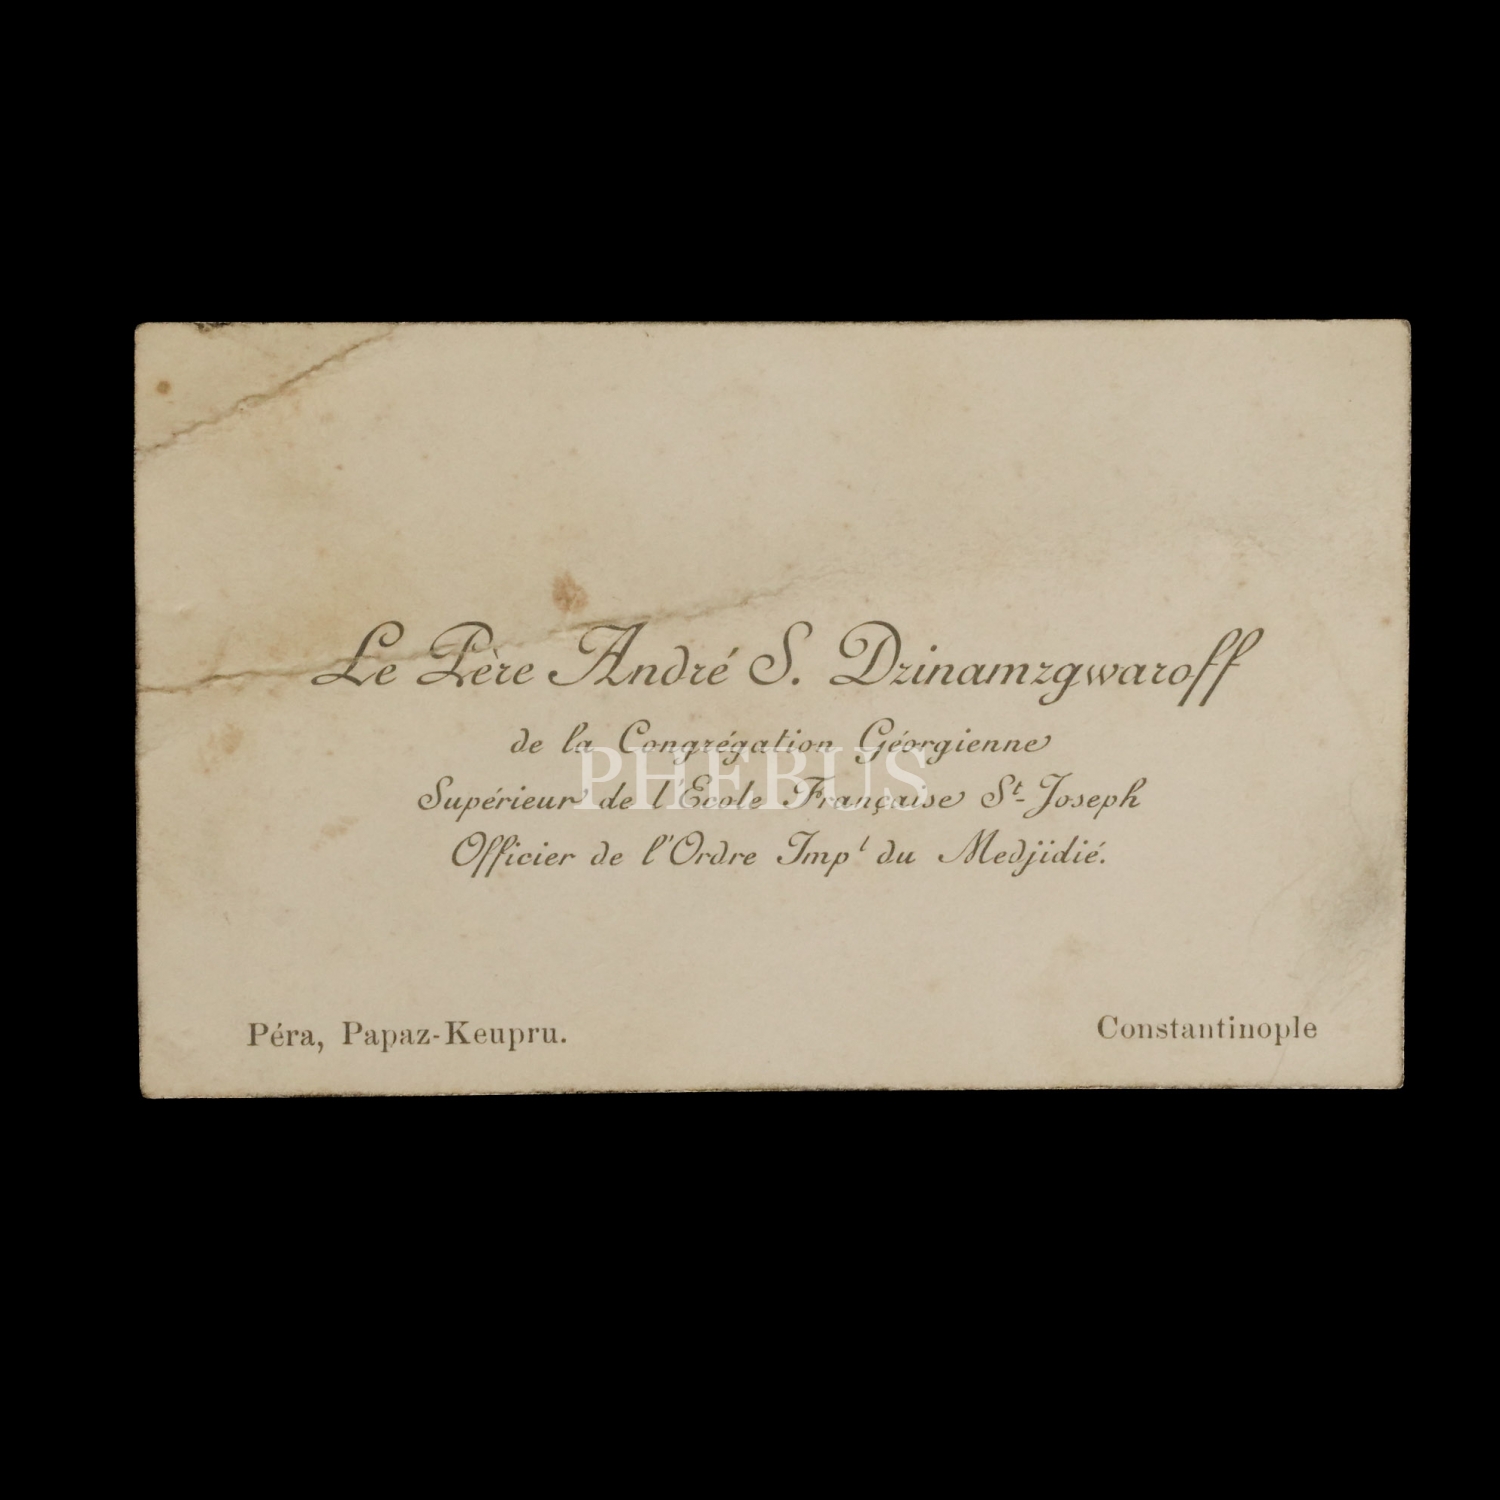 Le Père André S. Dzinamzgwaroff
de la Congrégation Géorgienne
PHEBUS
Supérieur de l'Ecole Française St-Joseph
Officier de l'Ordre Impl du Medjidié.
Péra, Papaz-Keupru.
Constantinople